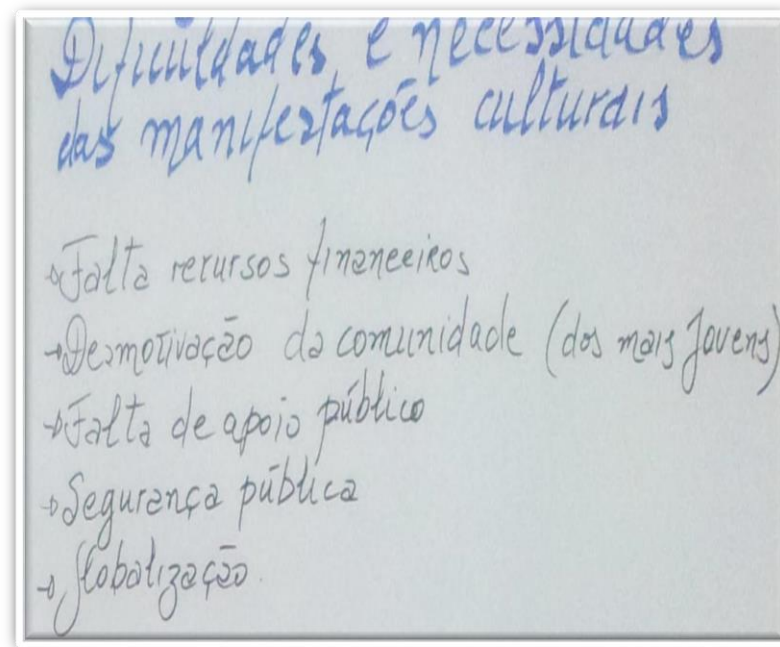 Dificuldades e necessidades
das manifestações culturais
→Falta recursos financeeiros
→Desmotivação da comunidade (dos mais Jovens)
→Falta de apoio público
→Segurança pública
→Globalização.